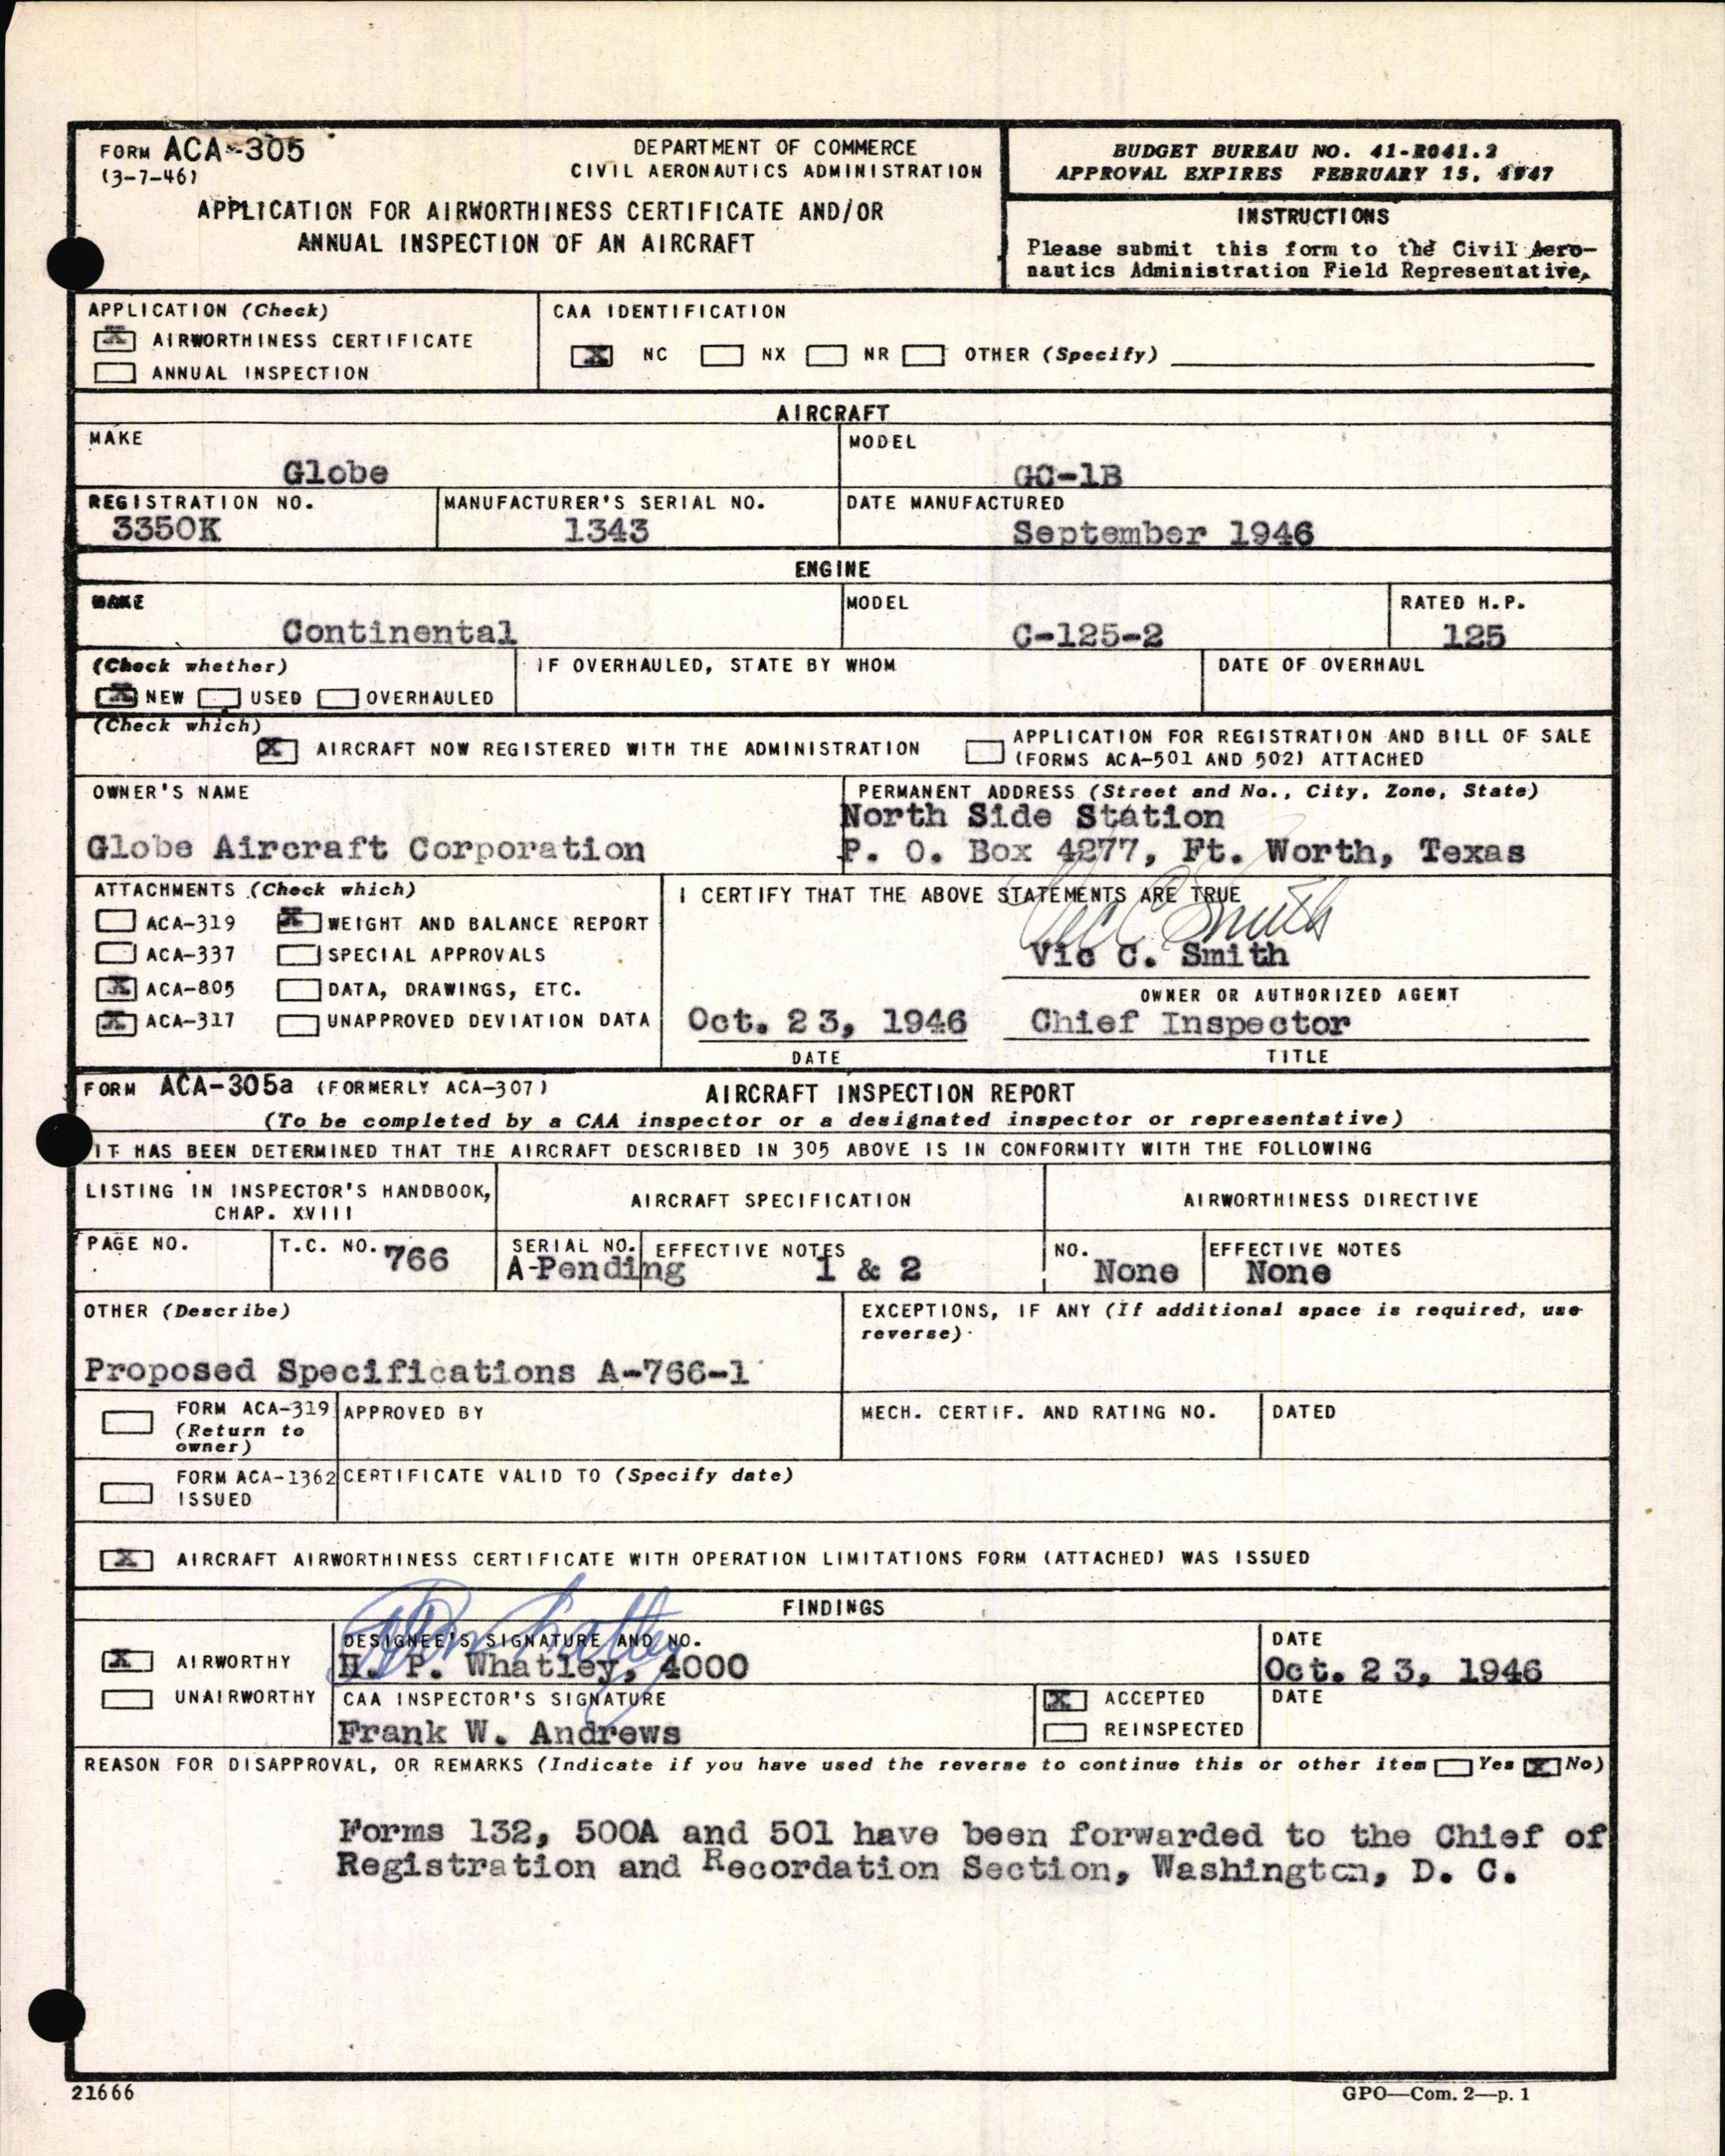 FORM ACA-305
(3-7-46)
DEPARTMENT OF COMMERCE
CIVIL AERONAUTICS ADMINISTRATION
APPLICATION FOR AIRWORTHINESS CERTIFICATE AND/OR
ANNUAL INSPECTION OF AN AIRCRAFT
BUDGET BUREAU NO. 41-R041.2
APPROVAL EXPIRES FEBRUARY 15, 1947
INSTRUCTIONS
Please submit this form to the Civil Aero-
nautics Administration Field Representative.
APPLICATION (Check)
X AIRWORTHINESS CERTIFICATE
ANNUAL INSPECTION
CAA IDENTIFICATION
X NC NX NR OTHER (Specify)
AIRCRAFT
MAKE
Globe
MODEL
GC-1B
REGISTRATION NO.
3350K
MANUFACTURER'S SERIAL NO.
1343
DATE MANUFACTURED
September 1946
ENGINE
MAKE
Continental
MODEL
C-125-2
RATED H.P.
125
(Check whether)
X NEW USED OVERHAULED
IF OVERHAULED, STATE BY WHOM
DATE OF OVERHAUL
(Check which)
X AIRCRAFT NOW REGISTERED WITH THE ADMINISTRATION
APPLICATION FOR REGISTRATION AND BILL OF SALE
(FORMS ACA-501 AND 502) ATTACHED
OWNER'S NAME
Globe Aircraft Corporation
PERMANENT ADDRESS (Street and No., City, Zone, State)
North Side Station
P. O. Box 4277, Ft. Worth, Texas
ATTACHMENTS (Check which)
ACA-319 X WEIGHT AND BALANCE REPORT
ACA-337 SPECIAL APPROVALS
X ACA-805 DATA, DRAWINGS, ETC.
X ACA-317 UNAPPROVED DEVIATION DATA
I CERTIFY THAT THE ABOVE STATEMENTS ARE TRUE
Vic C Smith
Vic C. Smith
OWNER OR AUTHORIZED AGENT
Oct. 23, 1946 Chief Inspector
DATE TITLE
FORM ACA-305a (FORMERLY ACA-307) AIRCRAFT INSPECTION REPORT
(To be completed by a CAA inspector or a designated inspector or representative)
IT HAS BEEN DETERMINED THAT THE AIRCRAFT DESCRIBED IN 305 ABOVE IS IN CONFORMITY WITH THE FOLLOWING
LISTING IN INSPECTOR'S HANDBOOK,
CHAP. XVIII
AIRCRAFT SPECIFICATION
AIRWORTHINESS DIRECTIVE
PAGE NO.
T.C. NO. 766
SERIAL NO.
A-Pending
EFFECTIVE NOTES
1 & 2
NO.
None
EFFECTIVE NOTES
None
OTHER (Describe)
Proposed Specifications A-766-1
EXCEPTIONS, IF ANY (If additional space is required, use
reverse)
FORM ACA-319
(Return to
owner)
APPROVED BY
MECH. CERTIF. AND RATING NO.
DATED
FORM ACA-1362
ISSUED
CERTIFICATE VALID TO (Specify date)
X AIRCRAFT AIRWORTHINESS CERTIFICATE WITH OPERATION LIMITATIONS FORM (ATTACHED) WAS ISSUED
FINDINGS
X AIRWORTHY
UNAIRWORTHY
DESIGNEE'S SIGNATURE AND NO.
H. P. Whatley, 4000
DATE
Oct. 23, 1946
CAA INSPECTOR'S SIGNATURE
Frank W. Andrews
X ACCEPTED
REINSPECTED
DATE
REASON FOR DISAPPROVAL, OR REMARKS (Indicate if you have used the reverse to continue this or other item Yes X No)
Forms 132, 500A and 501 have been forwarded to the Chief of
Registration and Recordation Section, Washington, D. C.
21666
GPO—Com. 2—p. 1